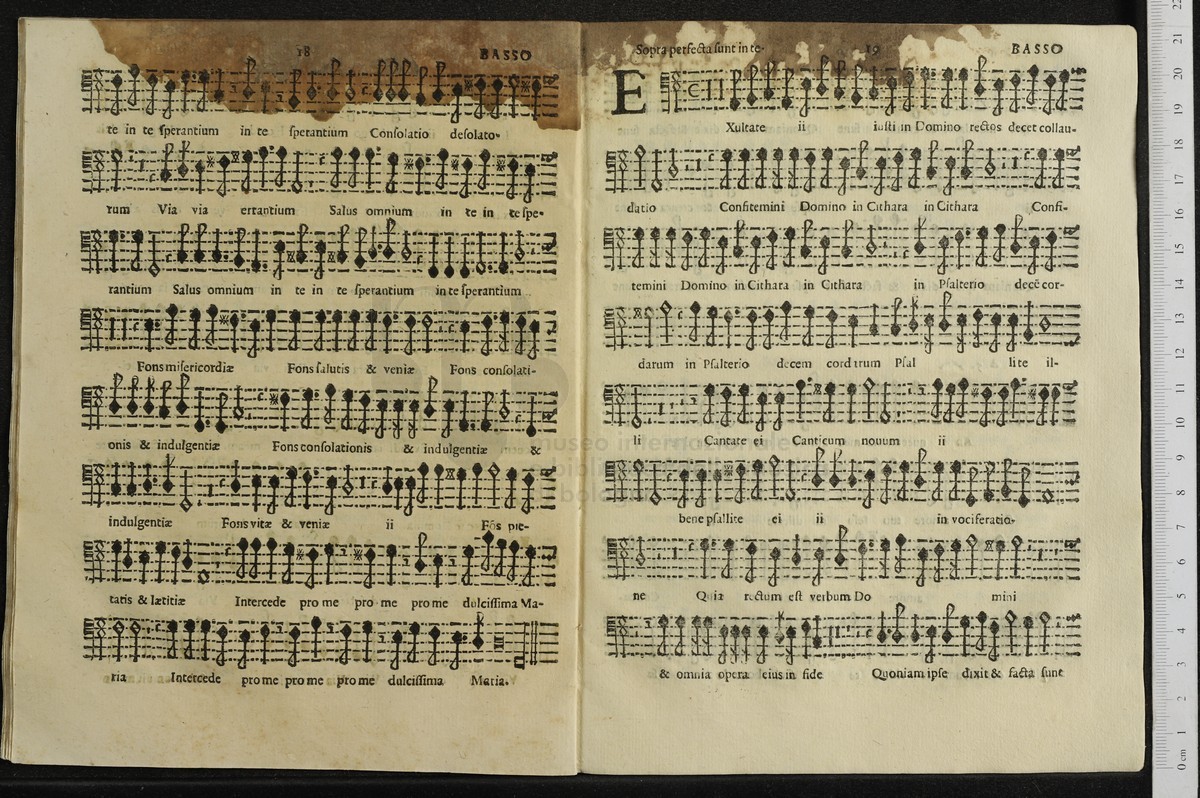 18 BASSO
te in te sperantium in te sperantium Consolatio desolato-
rum Via via errantium Salus omnium in te in te spe-
rantium Salus omnium in te in te sperantium in te sperantium
Fons misericordiæ Fons salutis & veniæ Fons consolati-
onis & indulgentiæ Fons consolationis & indulgentiæ &
indulgentiæ Fons vitæ & veniæ ii Fōs pie-
tatis & lætitiæ Intercede pro me pro me pro me dulcissima Ma-
ria Intercede pro me pro me pro me dulcissima Maria.
Sopra perfecta sunt in te. 19 BASSO
EXultate ii iusti in Domino rectos decet collau-
datio Confitemini Domino in Cithara in Cithara Confi-
temini Domino in Cithara in Cithara in Psalterio decē cor-
darum in Psalterio decem cordarum Psallite il-
li Cantate ei Canticum nouum ii
bene psallite ei ii in vociferatio-
ne Quia rectum est verbum Domini
& omnia opera eius in fide Quoniam ipse dixit & facta sunt
museo internazionale
biblioteca
0 cm 1 2 3 4 5 6 7 8 9 10 11 12 13 14 15 16 17 18 19 20 21 22